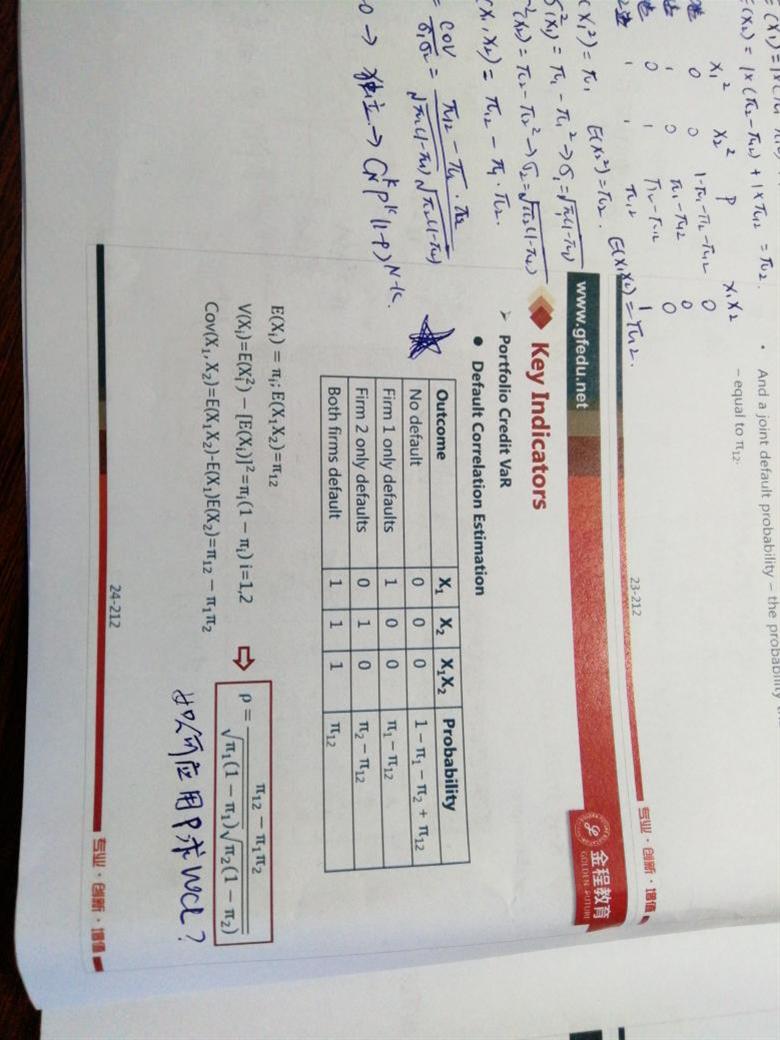 • And a joint default probability – the probability
– equal to π12.
23-212
专业·创新·增值
www.gfedu.net
金程教育
GOLDEN FUTURE
Key Indicators
➢ Portfolio Credit VaR
● Default Correlation Estimation
Outcome X1 X2 X1X2 Probability
No default 0 0 0 1 − π1 − π2 + π12
Firm 1 only defaults 1 0 0 π1 − π12
Firm 2 only defaults 0 1 0 π2 − π12
Both firms default 1 1 1 π12
E(Xi) = πi; E(X1X2)=π12
V(Xi)=E(Xi²) − [E(Xi)]²=πi(1 − πi) i=1,2
Cov(X1, X2)=E(X1X2)-E(X1)E(X2)=π12 − π1π2
ρ = π12 − π1π2 / √π1(1 − π1)√π2(1 − π2)
如何应用ρ求WCL?
24-212
专业·创新·增值
E(X2) = 1×(π2-π12) + 1×π12 = π2.
X1² X2² P X1X2
0 0 1-π1-π2-π12 0
1 0 π1-π12 0
0 1 π2-π12 0
1 1 π12 1
E(X1²) = π1 E(X2²) = π2. E(X1X2) = π12.
σ²(X1) = π1 - π1² → σ1 = √π1(1-π1)
σ²(X2) = π2 - π2² → σ2 = √π2(1-π2)
(X1, X2) = π12 - π1·π2.
= COV / σ1σ2 = π12 - π1·π2 / √π1(1-π1) √π2(1-π2)
0 → 独立 → C_N^K P^K (1-P)^N-K.